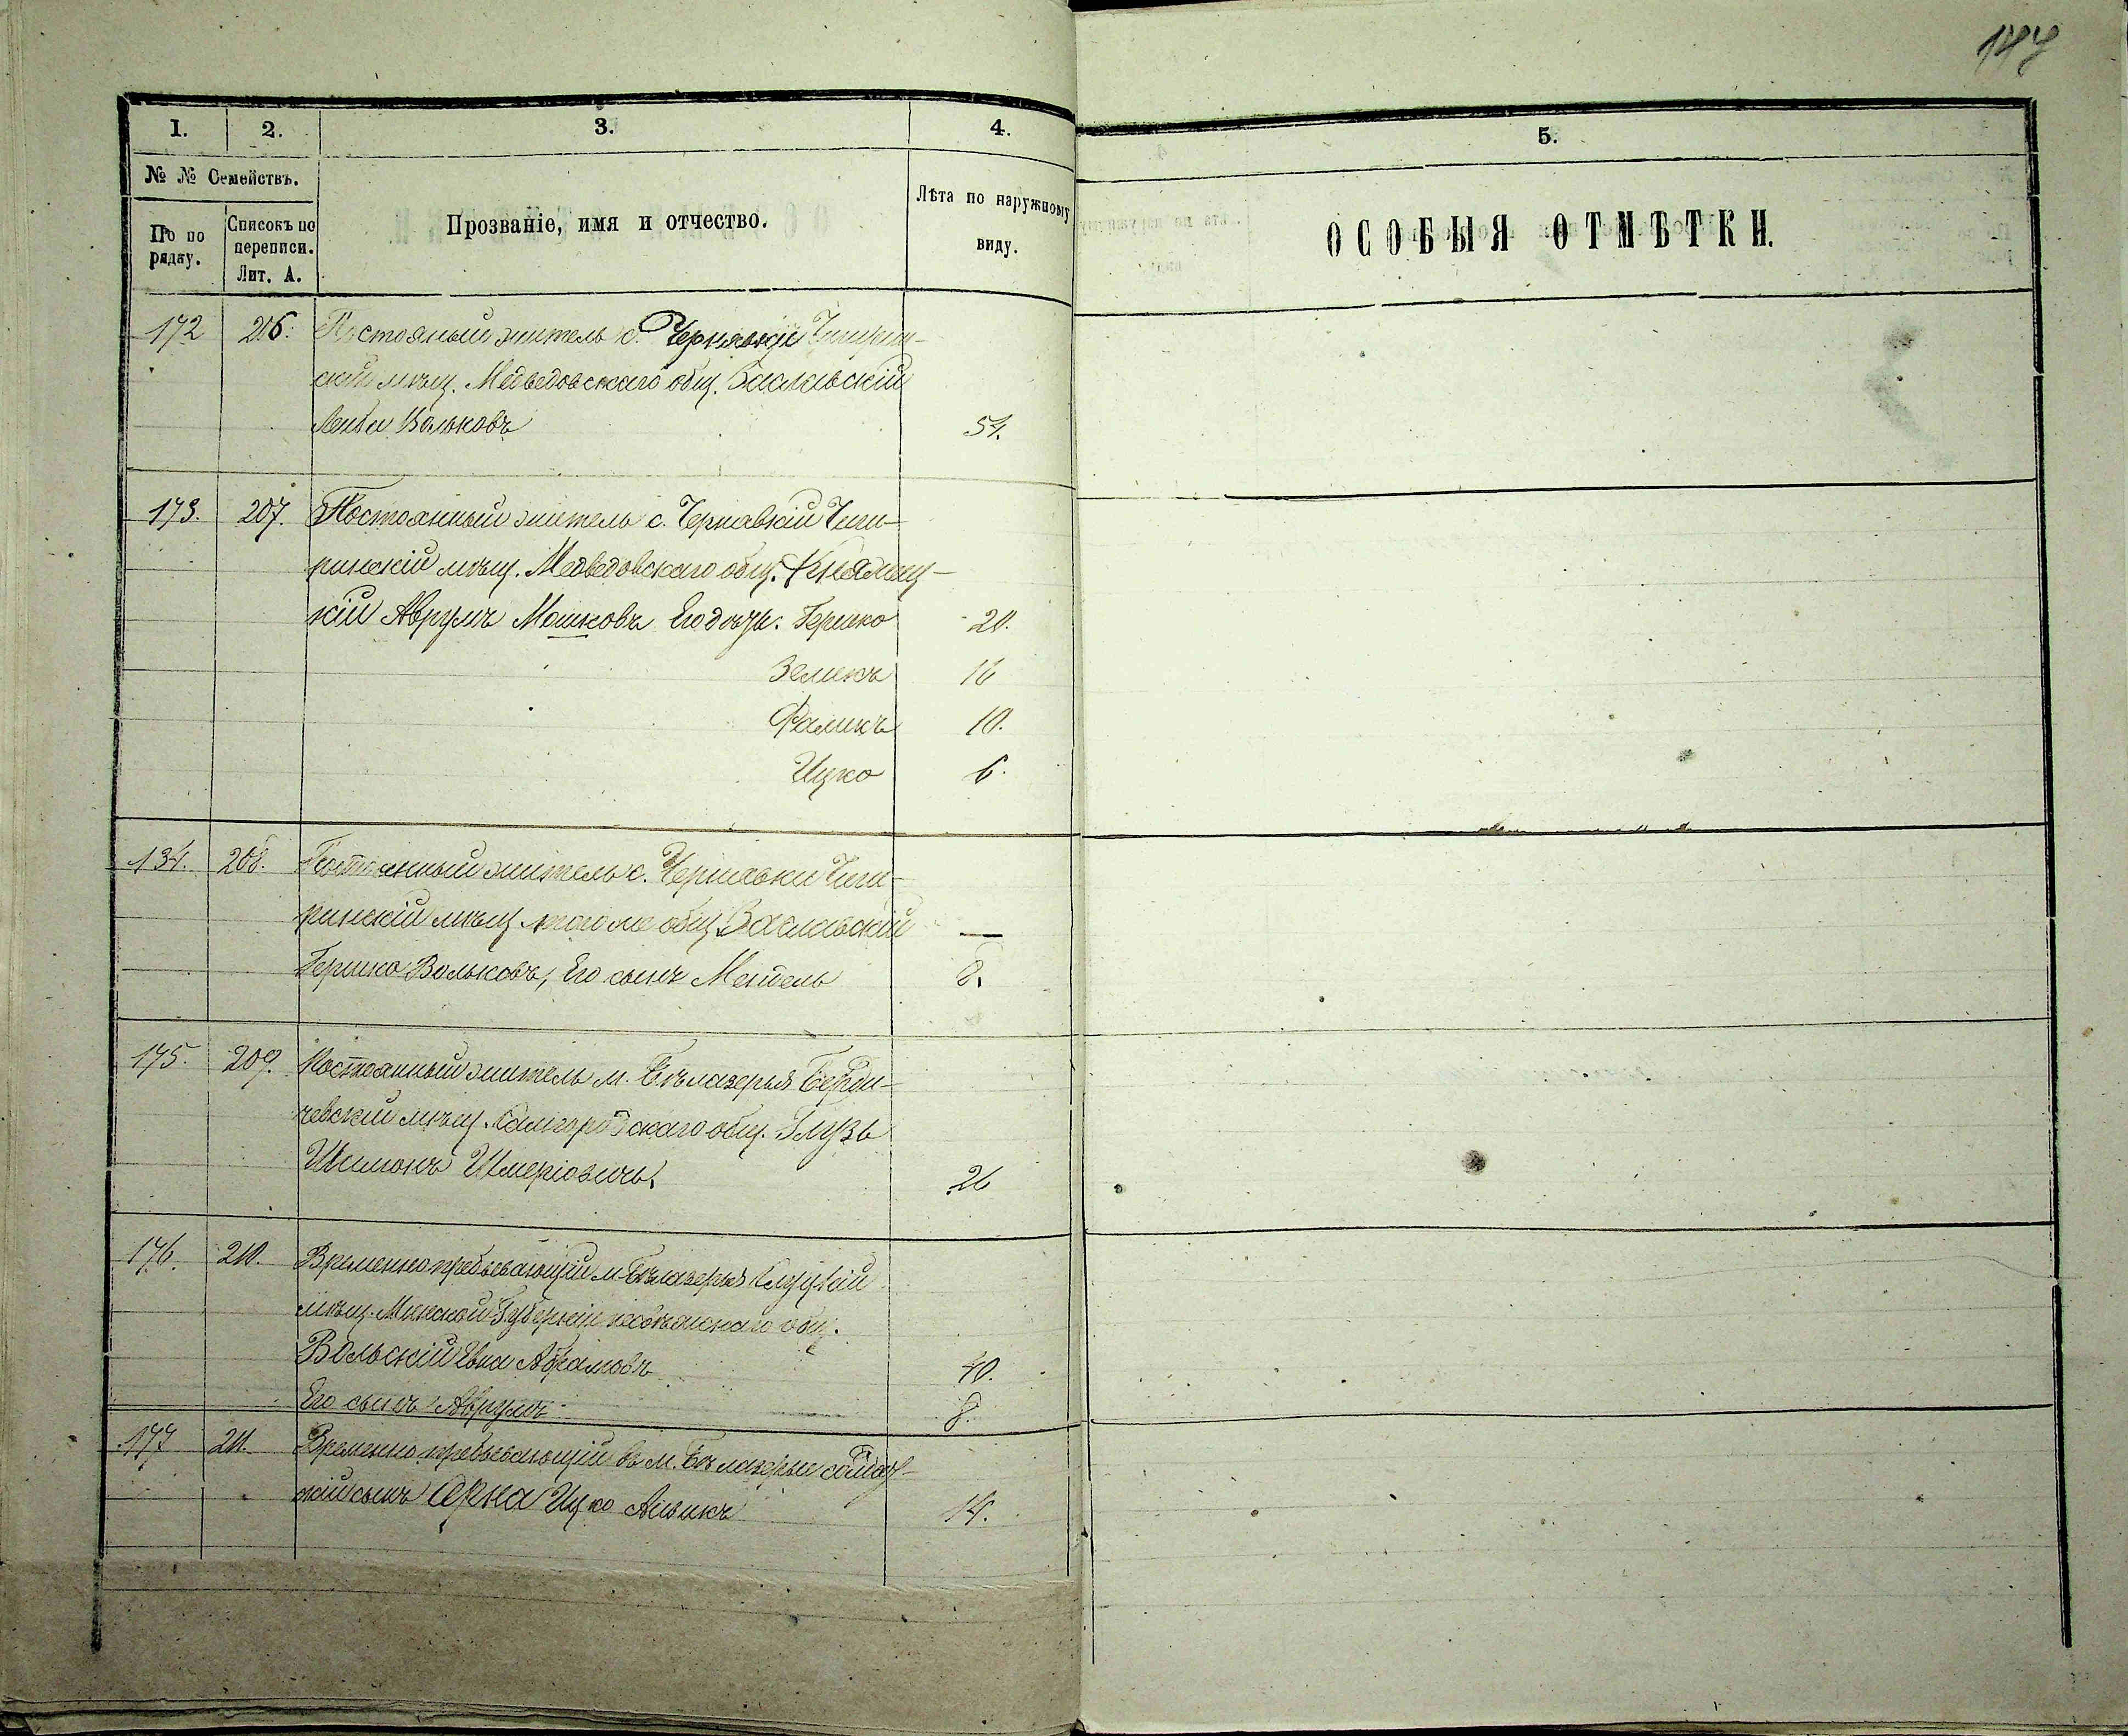 144
1.
2.
3.
4.
5.
№ № Семействъ.
По по рядку.
Списокъ по переписи. Лит. А.
Прозваніе, имя и отчество.
Лѣта по наружному виду.
ОСОБЫЯ ОТМѢТКИ.
172 206. Постояный житель с. Чернявки Чигирин-
скій мѣщ. Медведовскаго общ. Заславскій
Лейба Вольковъ 54.
173. 207. Постоянный житель с. Чернавкій Чиги-
ринскій мѣщ. Медведовскаго общ.
кій Аврумъ Мошковъ Его дѣти: Гершко 20.
Зеликъ 16
Фаликъ 10.
Ицко 6.
134. 208. Постоянный житель с. Чернявки Чиги-
ринскій мѣщ того же общ. Заславскій —
Гершко Вольковъ, Его сынъ Мендель 8.
175. 209. Постоянный житель м. Бѣлазерья Берди-
чевскій мѣщ. Самгородскаго общ. Глузь
Шимонъ Шмеріовичъ. 26
176. 210. Временно пребывающій м. Бѣлазерья Слуцкій
мѣщ. Минской Губерніи общ.
Вольскій Абрамовъ 40.
Его сынъ Аврумъ 8.
177 211. Временно пребывающій въ м. Бѣлазерьи солдат-
скій сынъ Ицко 14.